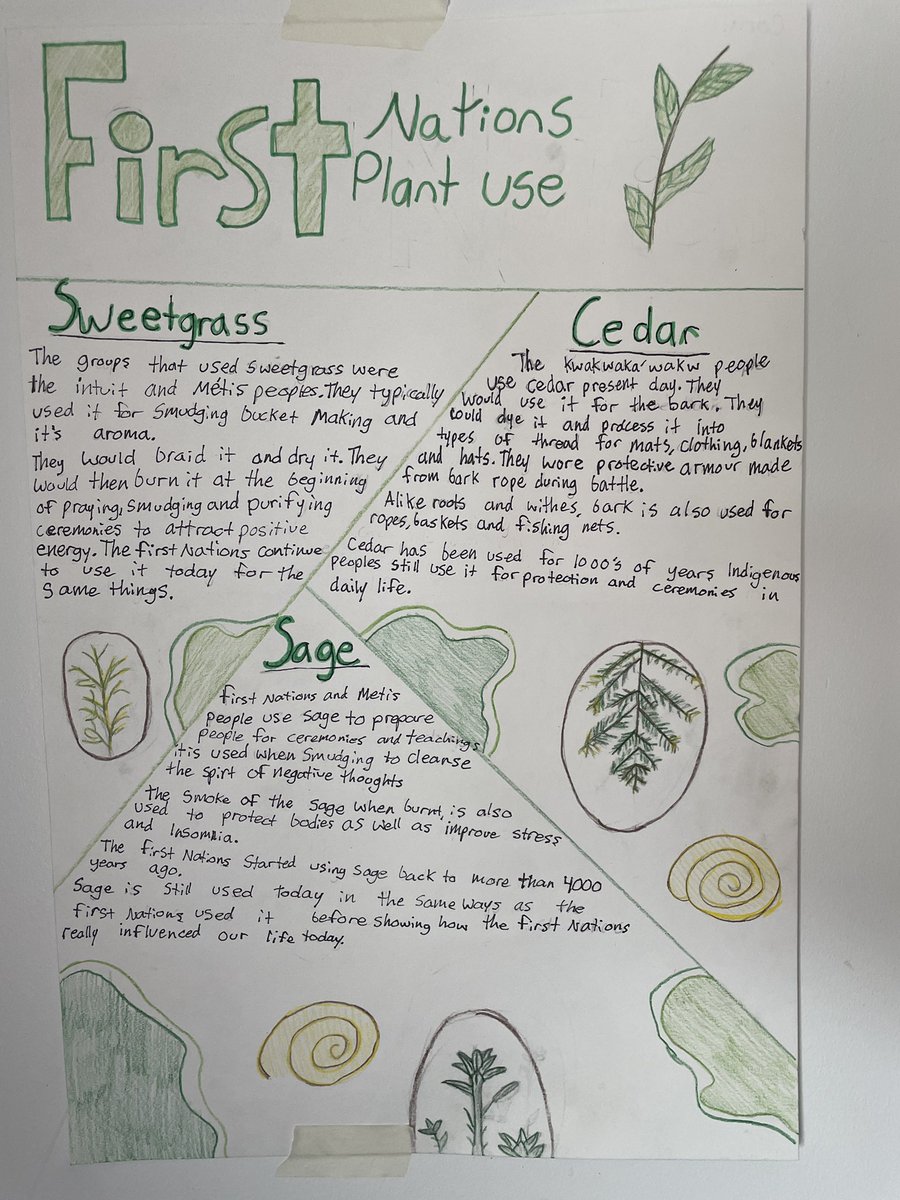 First Nations
Plant use
Sweetgrass
The groups that used sweetgrass were
the intuit and Métis peoples. They typically
used it for smudging bucket Making and
it's aroma.
They would braid it and dry it. They
would then burn it at the beginning
of praying, smudging and purifying
ceremonies to attract positive
energy. The first Nations continue
to use it today for the
same things.
Cedar
The Kwakwaka'wakw people
use cedar present day. They
would use it for the bark. They
could dye it and process it into
types of thread for mats, clothing, blankets
and hats. They wore protective armour made
from bark rope during battle.
Alike roots and withes, bark is also used for
ropes, baskets and fishing nets.
Cedar has been used for 1000's of years Indigenous
peoples still use it for protection and ceremonies in
daily life.
Sage
first Nations and Metis
people use sage to prepare
people for ceremonies and teachings
it is used when smudging to cleanse
the spirt of negative thoughts
The smoke of the sage when burnt, is also
used to protect bodies as well as improve stress
and Insomnia.
The first Nations started using sage back to more than 4000
years ago.
Sage is still used today in the same ways as the
first Nations used it before showing how the first Nations
really influenced our life today.